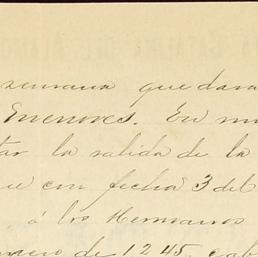 semana que dara
Enenores. En mi
tar la salida de la
ue con fecha 3 del
, á los Hermanos
nero de 1245, cab